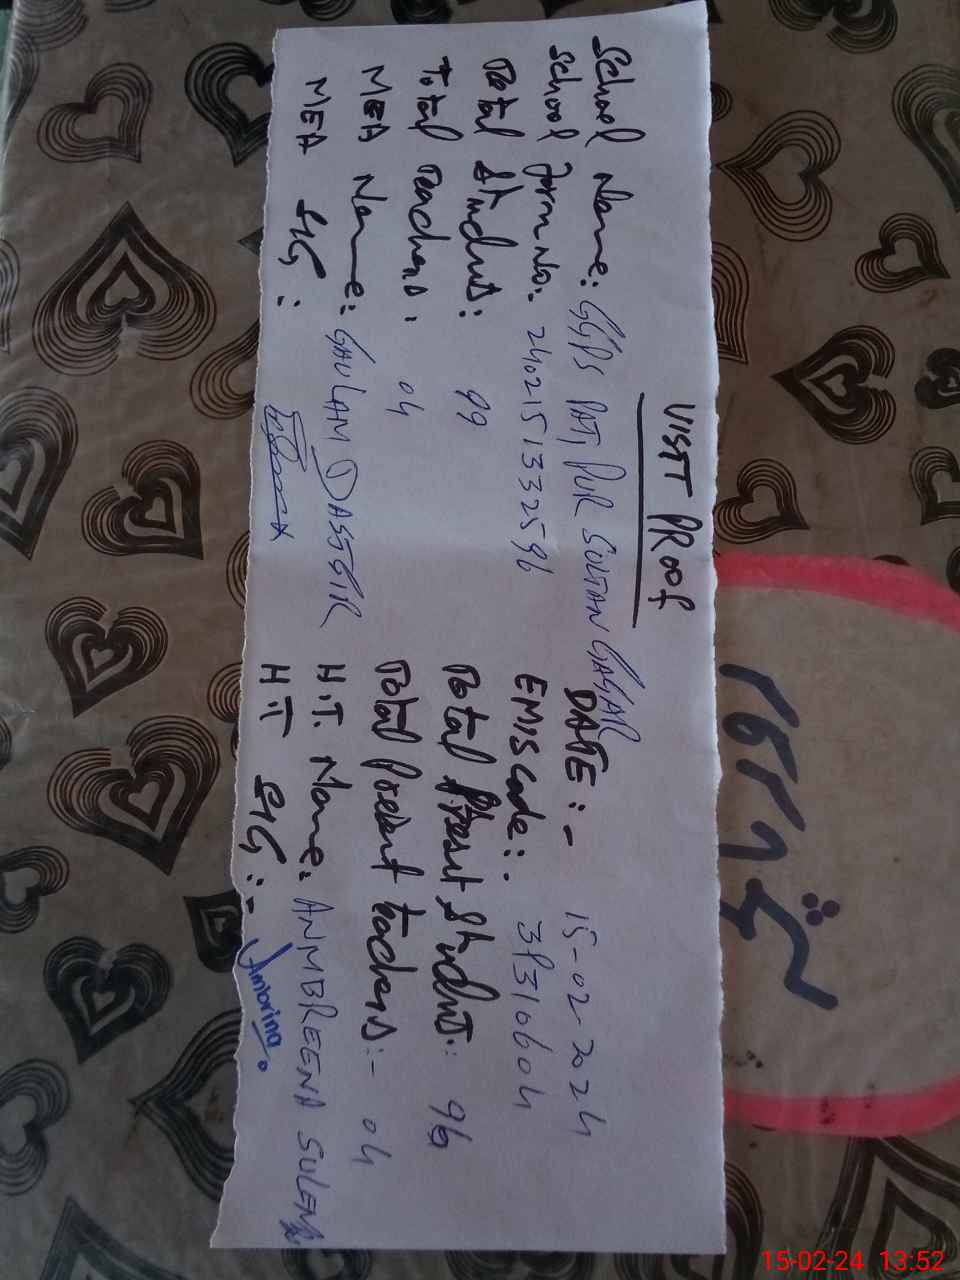 VISIT PROOF
School Name: GGPS PATI PUR SULTAN GAGAR DATE:- 15-02-2024
School Form No: 2402151332596 EMIS code:- 38310604
Total Students: 99 Total Present Students: 96
Total Teachers: 04 Total Present teachers:- 04
MEA Name: GHULAM DASTGIR H.T. Name: ANMBREENA SULEMA
MEA SIG: H.T SIG:- Ambrina
15-02-24 13:52